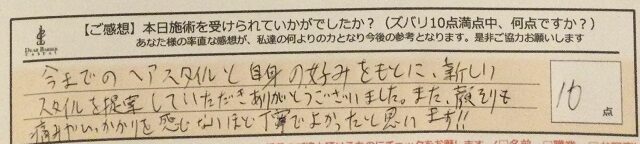 【ご感想】本日施術を受けられていかがでしたか？（ズバリ10点満点中、何点ですか？）
あなた様の率直な感想が、私達の何よりの力となり今後の参考となります。是非ご協力お願いします
今までのヘアスタイルと自身の好みをもとに、新しい
スタイルを提案していただきありがとうございました。また、顔そりも
痛みやひっかかりを感じないほど丁寧でよかったと思います!!
10
点